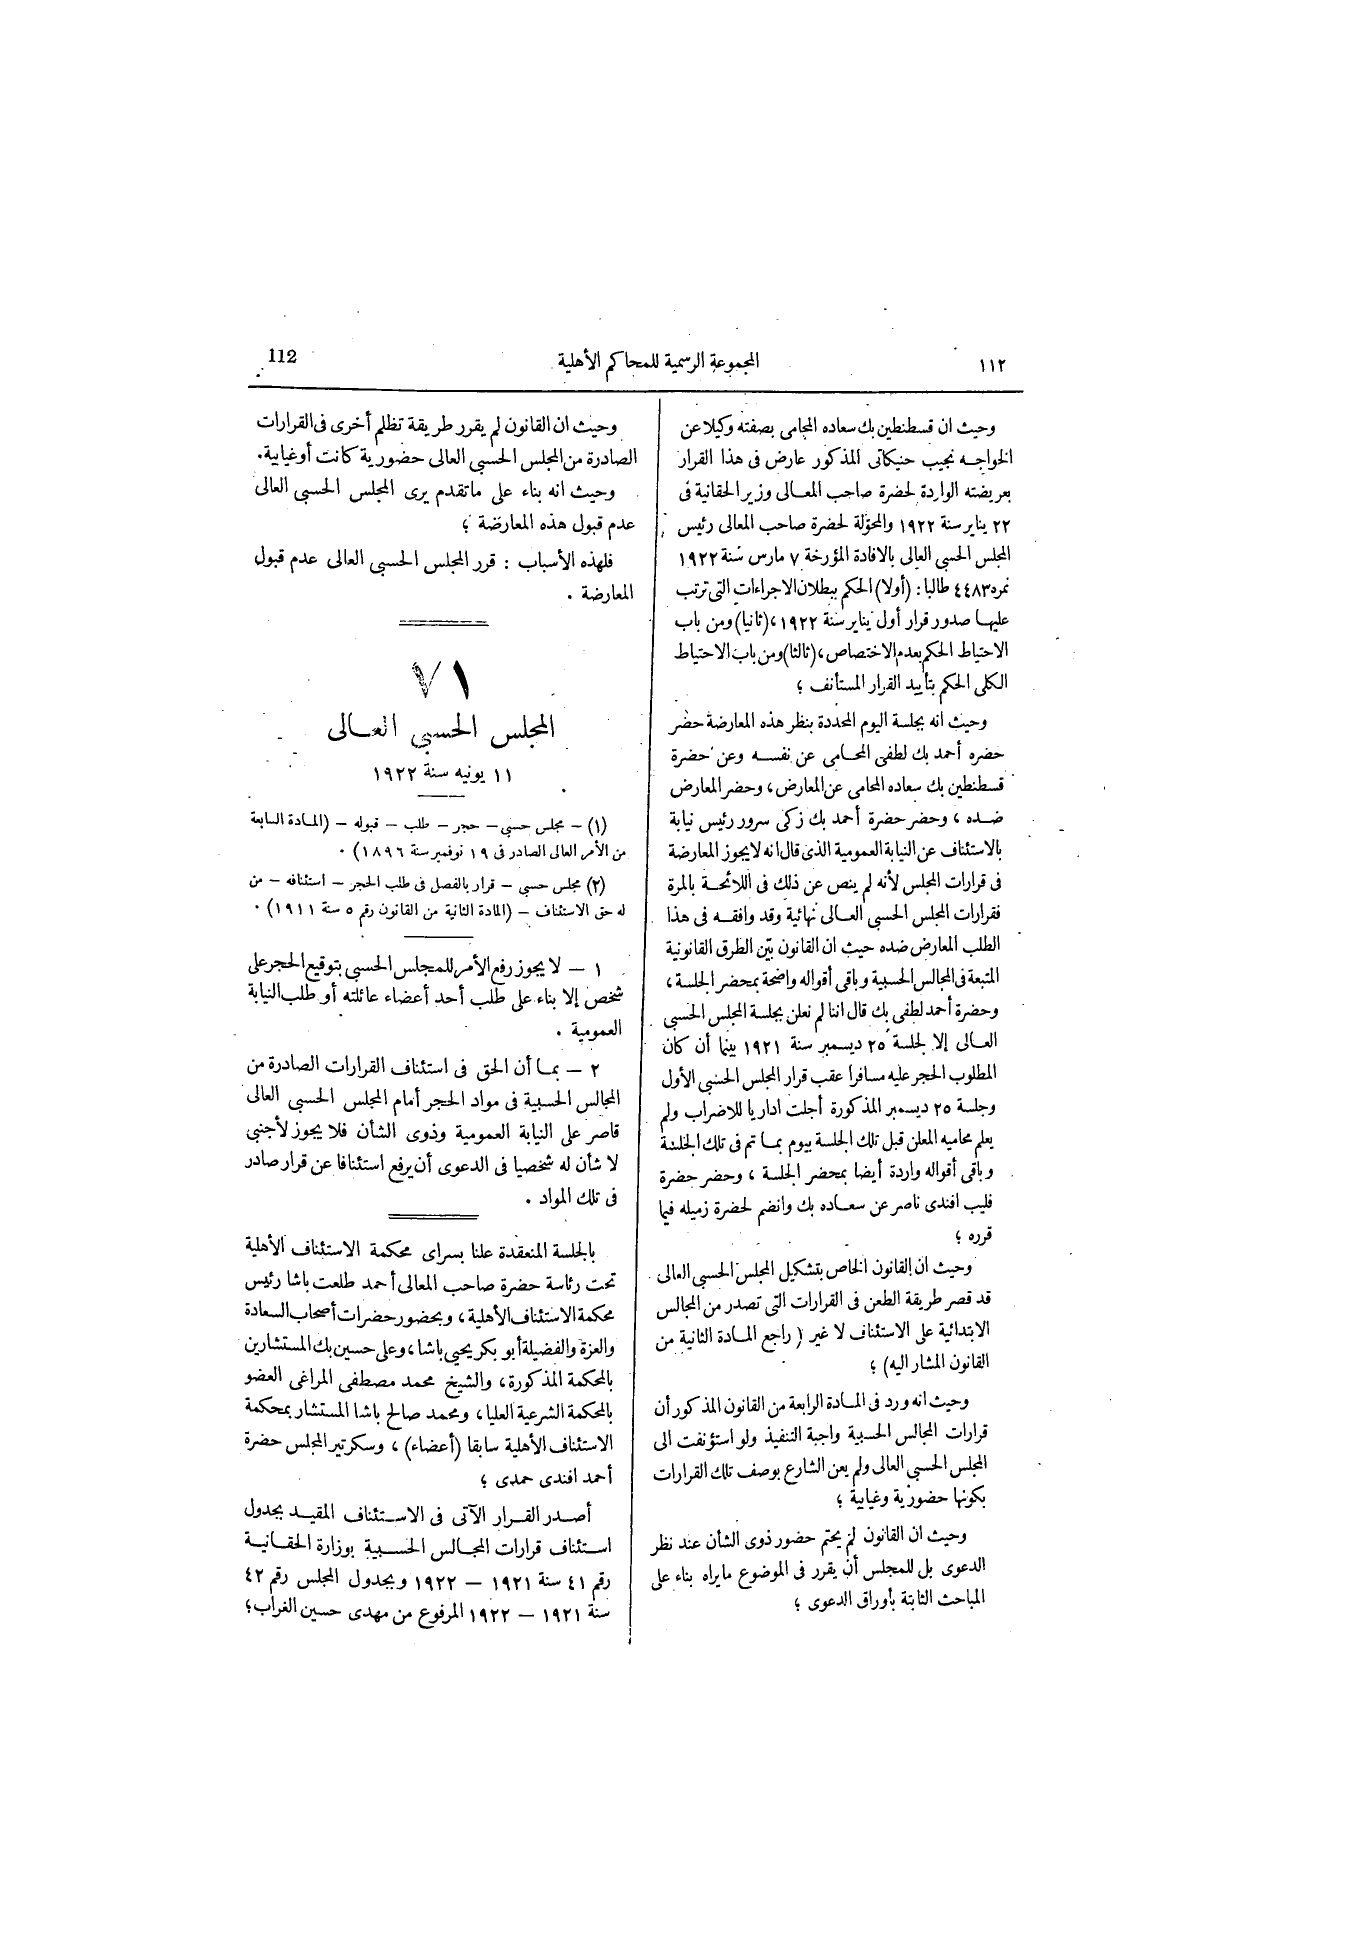 ١١٢
المجموعة الرسمية للمحاكم الأهلية
112
وحيث ان قسطنطين بك سعاده المحامى بصفته وكيلا عن
الخواجه نجيب حنيكاتى المذكور عارض فى هذا القرار
بعريضته الواردة لحضرة صاحب المعالى وزير الحقانية فى
٢٢ يناير سنة ١٩٢٢ والمحوّلة لحضرة صاحب المعالى رئيس
المجلس الحسبى العالى بالافادة المؤرخة ٧ مارس سنة ١٩٢٢
نمره ٤٤٨٣ طالبا : (أولا) الحكم ببطلان الاجراءات التى ترتب
عليها صدور قرار أول يناير سنة ١٩٢٢، (ثانيا) ومن باب
الاحتياط الحكم بعدم الاختصاص، (ثالثا) ومن باب الاحتياط
الكلى الحكم بتأييد القرار المستأنف ؛
وحيث انه بجلسة اليوم المحددة بنظر هذه المعارضة حضر
حضره أحمد بك لطفى المحامى عن نفسه وعن حضرة
قسطنطين بك سعاده المحامى عن المعارض، وحضر المعارض
ضده ، وحضر حضرة أحمد بك زكى سرور رئيس نيابة
بالاستئناف عن النيابة العمومية الذى قال انه لا يجوز المعارضة
فى قرارات المجلس لأنه لم ينص عن ذلك فى اللائحة بالمرة
فقرارات المجلس الحسبى العالى نهائية وقد وافقه فى هذا
الطلب المعارض ضده حيث ان القانون بيّن الطرق القانونية
المتبعة فى المجالس الحسبية وباقى أقواله واضحة بمحضر الجلسة ،
وحضرة أحمد لطفى بك قال اننا لم نعلن بجلسة المجلس الحسبى
العالى إلا لجلسة ٢٥ ديسمبر سنة ١٩٢١ بينما أن كان
المطلوب الحجر عليه مسافرا عقب قرار المجلس الحسبى الأول
وجلسة ٢٥ ديسمبر المذكورة أجلت اداريا للاضراب ولم
يعلم محاميه المعلن قبل تلك الجلسة بيوم بما تم فى تلك الجلسة
وباقى أقواله واردة أيضا بمحضر الجلسة ، وحضر حضرة
فليب افندى ناصر عن سعاده بك وانضم لحضرة زميله فيما
قرره ؛
وحيث ان القانون الخاص بتشكيل المجلس الحسبى العالى
قد قصر طريقة الطعن فى القرارات التى تصدر من المجالس
الابتدائية على الاستئناف لا غير ( راجع المادة الثانية من
القانون المشار اليه) ؛
وحيث انه ورد فى المادة الرابعة من القانون المذكور أن
قرارات المجالس الحسبية واجبة التنفيذ ولو استؤنفت الى
المجلس الحسبى العالى ولم يعن الشارع بوصف تلك القرارات
بكونها حضورية وغيابية ؛
وحيث ان القانون لم يحتم حضور ذوى الشأن عند نظر
الدعوى بل للمجلس أن يقرر فى الموضوع ما يراه بناء على
المباحث الثابتة بأوراق الدعوى ؛
وحيث ان القانون لم يقرر طريقة تظلم أخرى فى القرارات
الصادرة من المجلس الحسبى العالى حضورية كانت أو غيابية .
وحيث انه بناء على ما تقدم يرى المجلس الحسبى العالى
عدم قبول هذه المعارضة ؛
فلهذه الأسباب : قرر المجلس الحسبى العالى عدم قبول
المعارضة .
٧١
المجلس الحسبى العالى
١١ يونيه سنة ١٩٢٢
(١) – مجلس حسبى – حجر – طلب – قبوله – (المادة السابعة
من الأمر العالى الصادر فى ١٩ نوفمبر سنة ١٨٩٦) .
(٢) مجلس حسبى – قرار بالفصل فى طلب الحجر – استئنافه – من
له حق الاستئناف – (المادة الثانية من القانون رقم ٥ سنة ١٩١١) .
١ – لا يجوز رفع الأمر للمجلس الحسبى بتوقيع الحجر على
شخص إلا بناء على طلب أحد أعضاء عائلته أو طلب النيابة
العمومية .
٢ – بما أن الحق فى استئناف القرارات الصادرة من
المجالس الحسبية فى مواد الحجر أمام المجلس الحسبى العالى
قاصر على النيابة العمومية وذوى الشأن فلا يجوز لأجنبى
لا شأن له شخصيا فى الدعوى أن يرفع استئنافا عن قرار صادر
فى تلك المواد .
بالجلسة المنعقدة علنا بسراى محكمة الاستئناف الأهلية
تحت رئاسة حضرة صاحب المعالى أحمد طلعت باشا رئيس
محكمة الاستئناف الأهلية ، وبحضور حضرات أصحاب السعادة
والعزة والفضيلة أبو بكر يحيى باشا ، وعلى حسين بك المستشارين
بالمحكمة المذكورة، والشيخ محمد مصطفى المراغى العضو
بالمحكمة الشرعية العليا، ومحمد صالح باشا المستشار بمحكمة
الاستئناف الأهلية سابقا (أعضاء) ، وسكرتير المجلس حضرة
أحمد افندى حمدى ؛
أصدر القرار الآتى فى الاستئناف المقيد بجدول
استئناف قرارات المجالس الحسبية بوزارة الحقانية
رقم ٤١ سنة ١٩٢١ – ١٩٢٢ وبجدول المجلس رقم ٤٢
سنة ١٩٢١ – ١٩٢٢ المرفوع من مهدى حسين الغراب؛